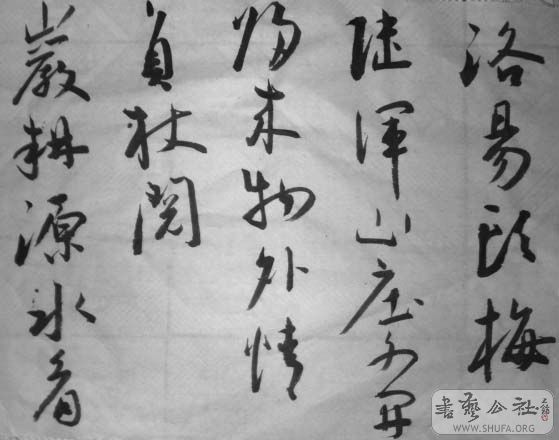 洛易梅
陸渾山庄
歸来物外情
負杖閱
巖耕源水看
書藝公社
WWW.SHUFA.ORG